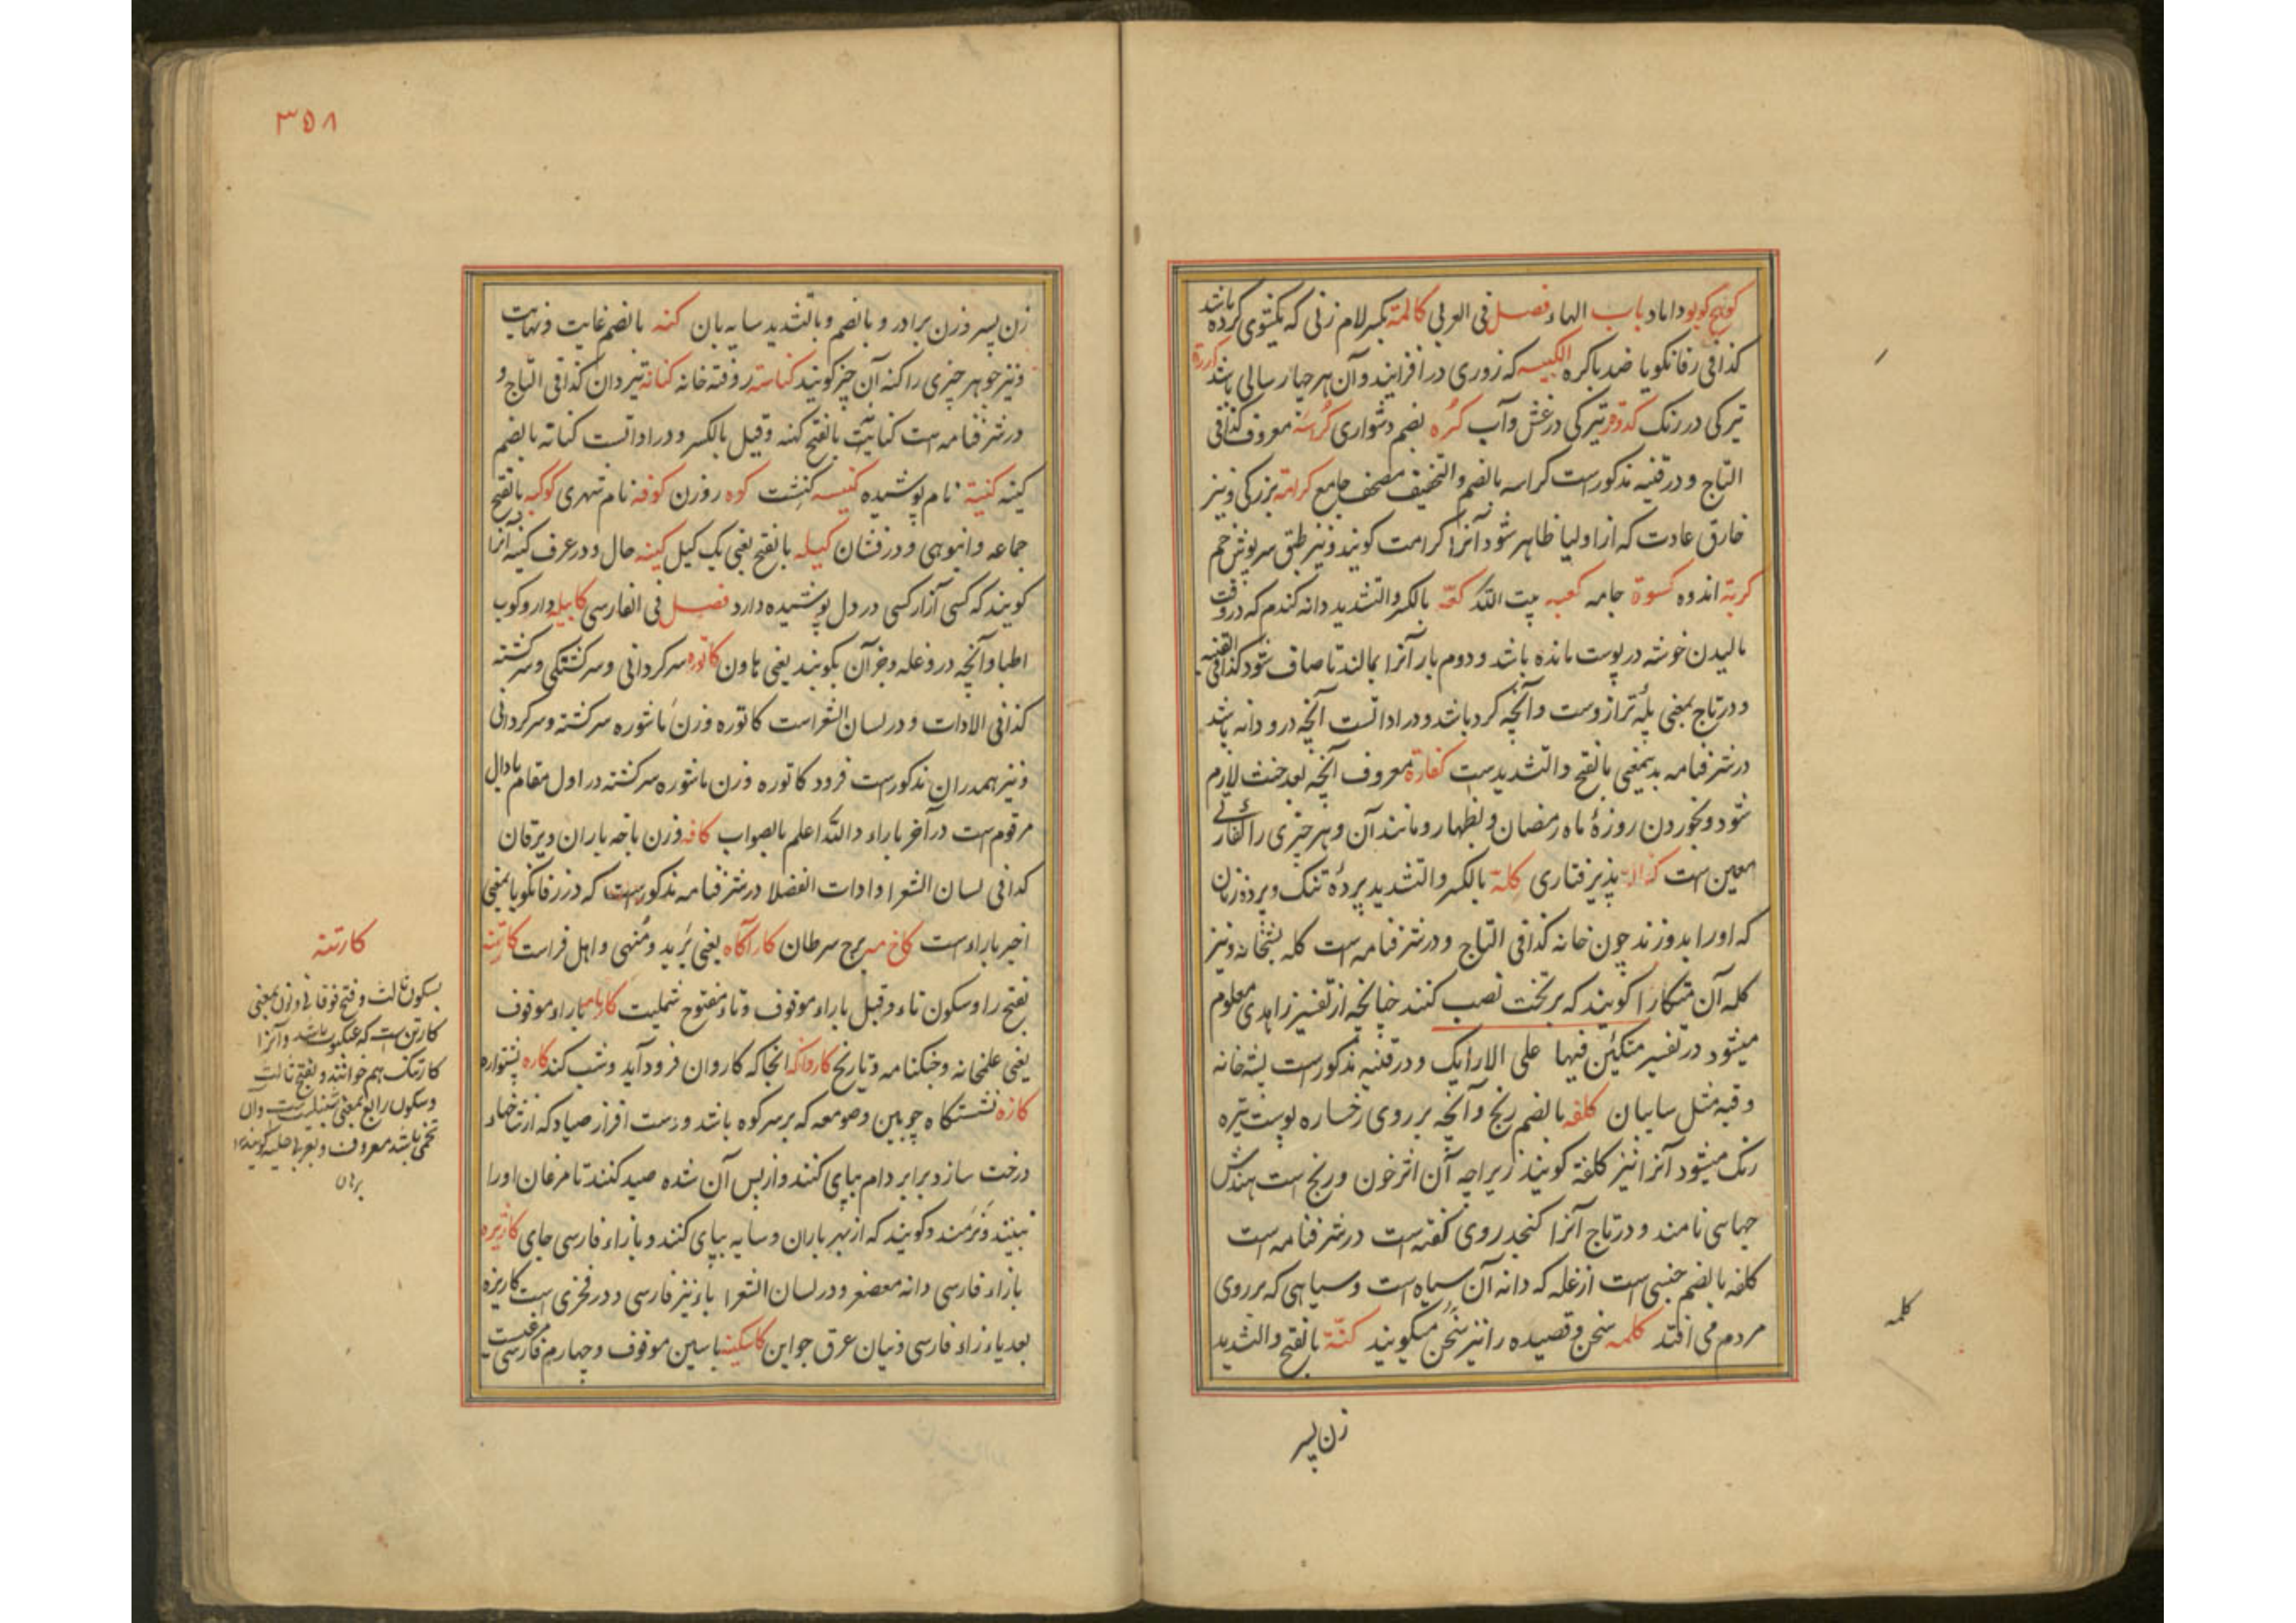 کونج کوبو داماد باب الهاء فصل فی العربی کالمة بکسر لام زنی که یکشوی کرده باشد
کذا فی زفانگویا ضد باکره الکبیسه که زوری در افزایند و آن هر چهار سالی باشد کدرة
تیرگی در رنگ کدوة تیرگی در عیش و آب کره بضم دشواری کراسه معروف کذا فی
التاج و در قنیه مذکورست کراسه بالضم والتخفیف مصحف جامع کرامة بزرگی و نیز
خارق عادت که از اولیا ظاهر شود آنرا کرامت گویند و نیز طبق سرپوش خم
کربة اندوه کسوة جامه کعبه بیت الله کعه بالکسر والتشدید دانه گندم که در وقت
مالیدن خوشه در پوست مانده باشد و دوم بار آنرا بمالند تا صاف شود کذا فی القنیه
و در تاج بمعنی پله ترازوست و آنچه گرد باشد و در اداتست آنچه درو دانه باشد
در شرفنامه بدینمعنی بالفتح والتشدیدست کفارة معروف آنچه بعد حنث لازم
شود و بخوردن روزهٔ ماه رمضان و بظهار و مانند آن و هر چیزی را کفارتی
معین ست کفالة پذیرفتاری کلة بالکسر والتشدید پردهٔ تنک و پرده زنان
که او را بدوزند چون خانه کذا فی التاج و در شرفنامه ست کله پشخانه و نیز
کله آن متکا را گویند که بر تخت نصب کنند چنانچه از تفسیر زاهدی معلوم
میشود در تفسیر متکئین فیها علی الارایک و در قنیه مذکورست پشه خانه
و قبه مثل سایبان کلفه بالضم رنج و آنچه بر روی رخساره پوست تیره
رنگ میشود آنرا نیز کلفة گویند زیراچه آن اثر خون و رنج ست هندش
جهاسی نامند و در تاج آنرا کنجد روی گفته است در شرفنامه است
کلفه بالضم جنسی است از غله که دانه آن سیاه است و سیاهی که بر روی
مردم می افتد کلمه سخن و قصیده را نیز سخن میگویند کنّة بالفتح والتشدید
کلمه
زن پسر
۳۵۸
زن پسر و زن برادر و بالضم و بالتشدید سایه بان کنه بالضم غایت و نهایت
و نیز جوهر چیزی را کنه آن چیز گویند کناسه روفته خانه کنانة تیردان کذا فی التاج و
در شرفنامه ست کنایت بالفتح کنه و قیل بالکسر و در اداتست کنانه بالضم
کینه کنیة نام پوشیده کنیسه کنشت کوه روزن کوفه نام شهری کوکبه بالفتح
جماعه و انبوهی و درفشان کیله بالفتح یعنی یک کیل کینه حال و در عرف کینه آنرا
گویند که کسی آزار کسی در دل پوشیده دارد فصل فی الفارسی کابیله داروکوب
اطبا و آنچه درو غله و جز آن بکوبند یعنی هاون کاتوره سرگردانی و سرگشتگی و سرگشته
کذا فی الادات و در لسان الشعراست کاتوره وزن ماشوره سرگشته و سرگردانی
و نیز همدران مذکورست فرود کاتوره وزن ماشوره سرگشته در اول مقام بادال
مرقوم ست در آخر باراء والله اعلم بالصواب کافه وزن باجه باران و یرقان
کذا فی لسان الشعرا و ادات الفضلا در شرفنامه مذکورست که در زفانگویا بمعنی
اخیر باراءست کاخ مه برج سرطان کارآگاه یعنی برید و منهی و اهل فراست کارتنه
بفتح را و سکون تاء و قیل باراء موقوف و تاء مفتوح شملیت کارنامه باراء موقوف
یعنی علمخانه و جنگنامه و تاریخ کاروانگه آنجا که کاروان فرود آید و شب کند کاره پشتواره
کازه نشستگاه چوبین و صومعه که بر سر کوه باشد و دست افزار صیاد که از شاخهاء
درخت سازد و برابر دام بپای کنند و از پس آن شده صید کنند تا مرغان او را
نبینند و نرمند و گویند که از بهر باران و سایه بپای کنند و بازاء فارسی جای کاژیره
بازاء فارسی دانه معصفر و در لسان الشعرا باء نیز فارسی و در فخری است کاریزه
بعد یاء زاء فارسی و نیان عرق جو این کاسکینه باسین موقوف و چهارم فارسی مرغیست
کارتنه
بسکون ثالث و فتح فوقانی و نون بمعنی
کارتن ست که عنکبوت باشد و آنرا
کارتنک هم خوانند و بفتح ثالث
و سکون رابع بمعنی شنبلیت ست و آن
تخمی باشد معروف و بعربی حلبه گویند ۱۲
برهان